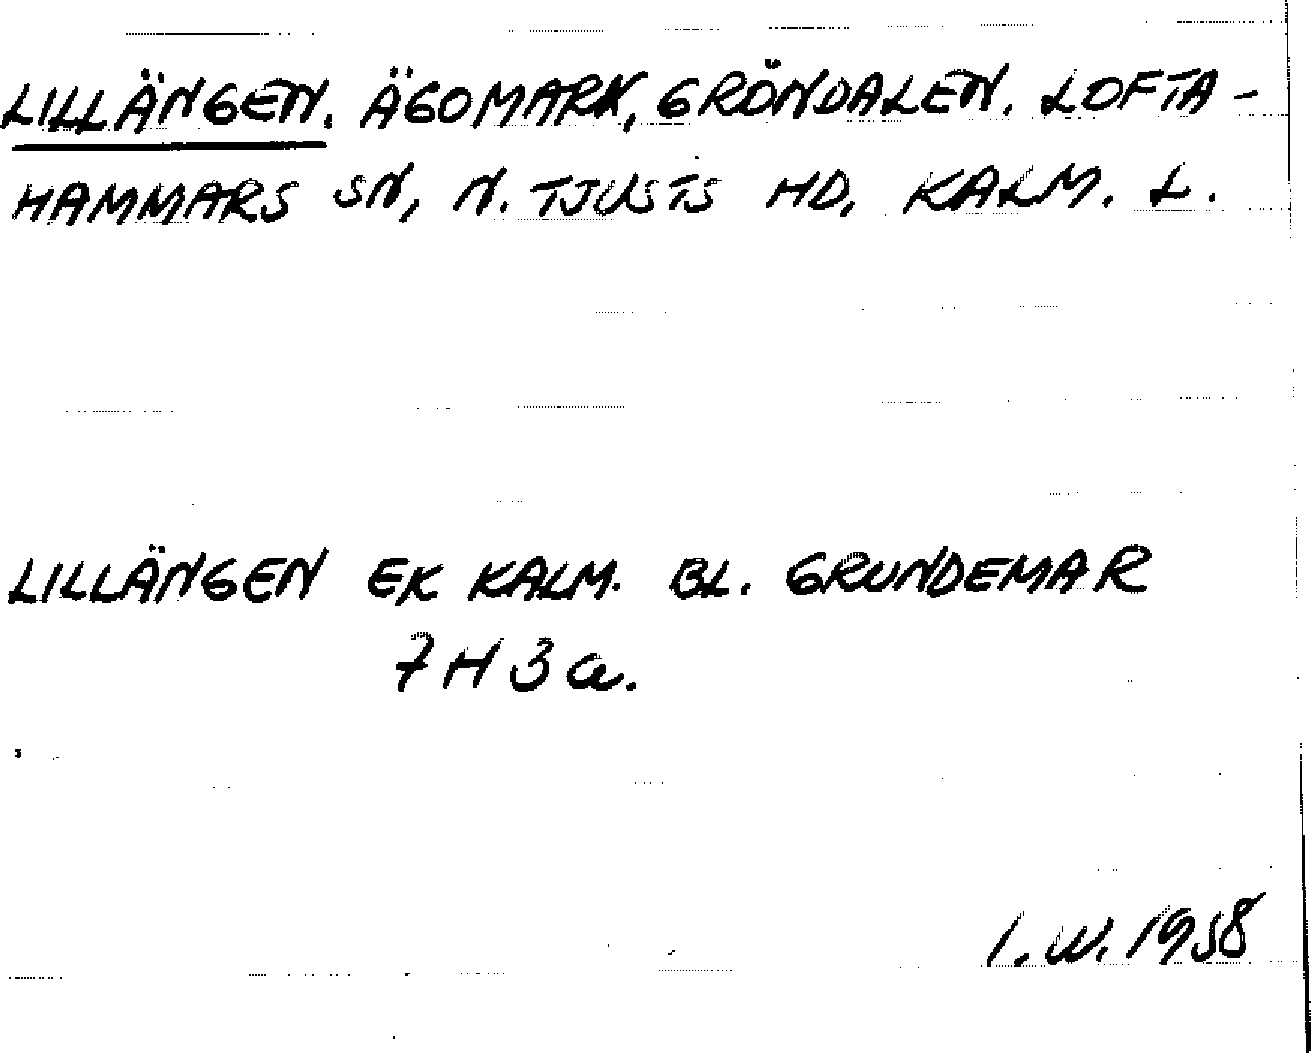 LILLÄNGEN. ÄGOMARK, GRÖNDALEN. LOFTA-
HAMMARS SN, N. TJUSTS HD, KALM. L.
LILLÄNGEN EK KALM. BL. GRUNDEMAR
7H3a.
I.W. 1958